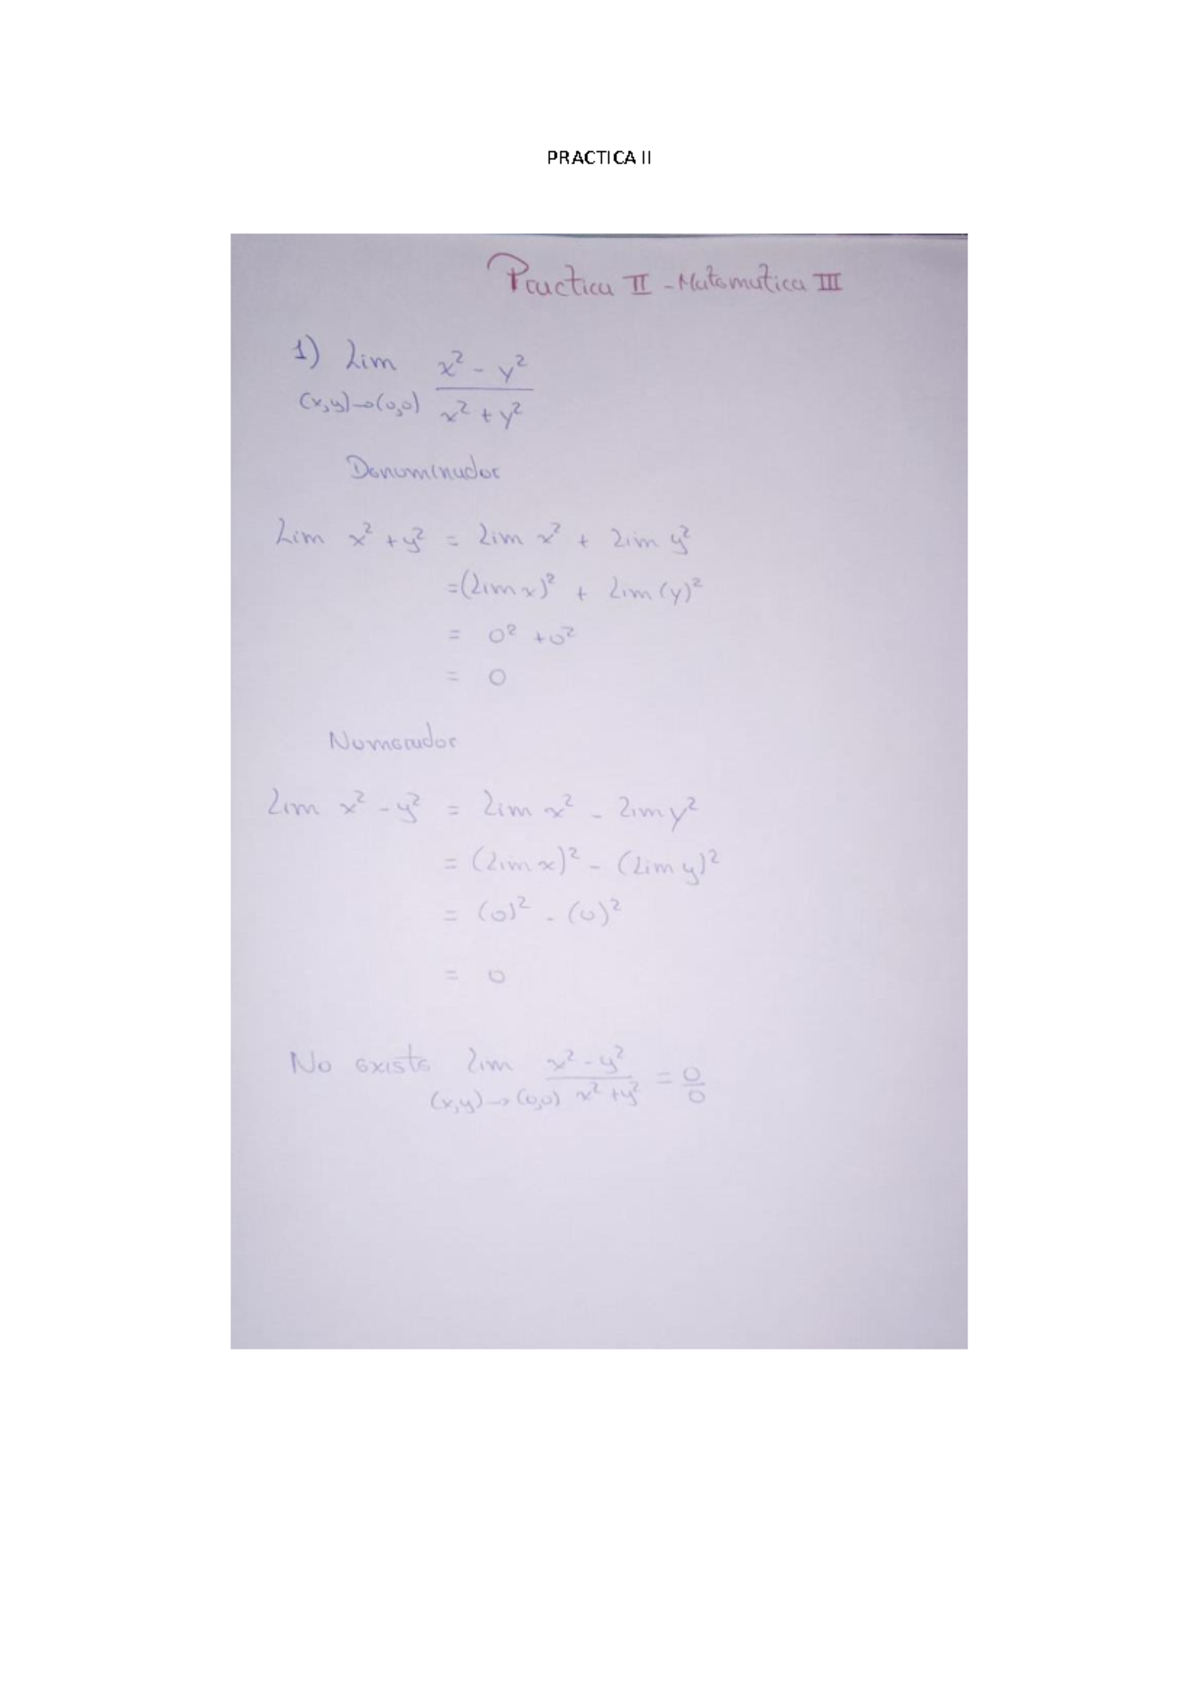 PRACTICA II
Practica II - Matematica III
1) Lim x² - y²
(x,y)→(0,0) x² + y²
Denominador
Lim x² + y² = Lim x² + Lim y²
= (Lim x)² + Lim (y)²
= 0² + 0²
= 0
Numerador
Lim x² - y² = Lim x² - Lim y²
= (Lim x)² - (Lim y)²
= (0)² - (0)²
= 0
No existe Lim x² - y² = 0
(x,y)→(0,0) x² + y² 0